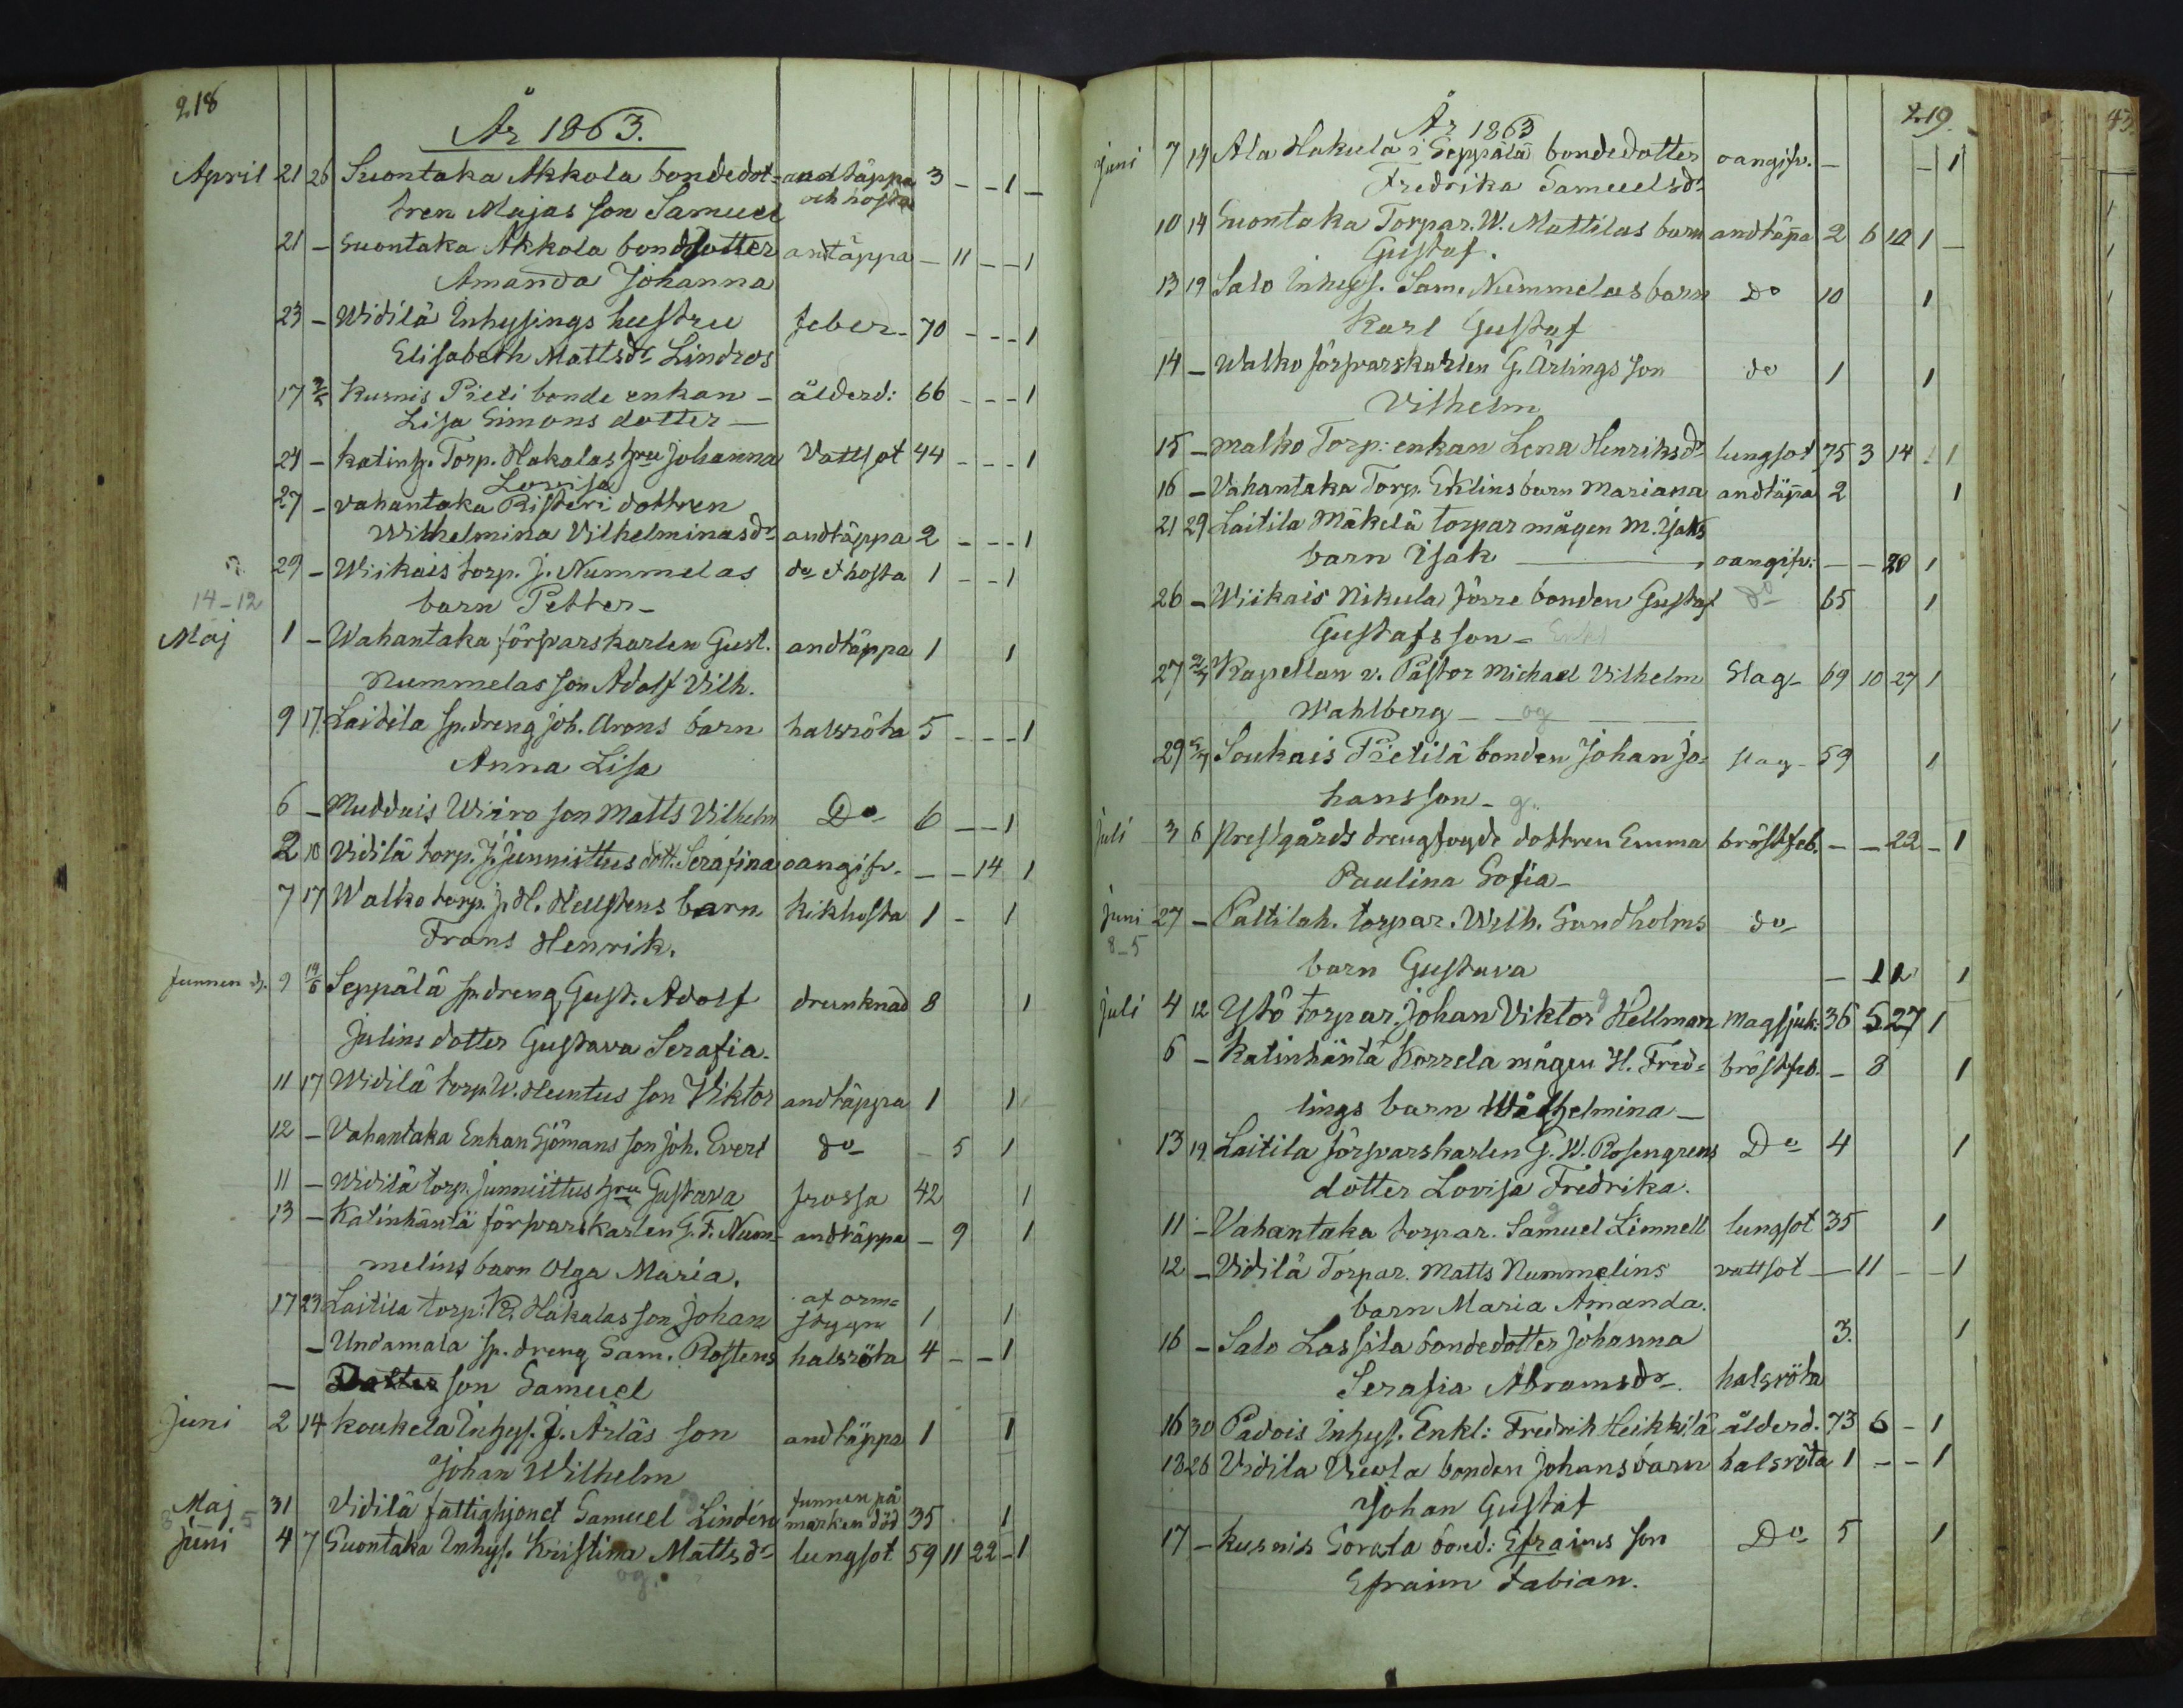 218
År 1863.
April 21 26 Suontaka Akkola bondedot= andtäppa 3 - - 1 -
tren Majas son Samuel och hosta
21 - Suontaka Akkola bonddotter andtäppa - 11 - - 1
Amanda Johanna
23 - Widilä Inhysings hustru feber - 70 - - - 1
Elisabeth Mattsdr Lindros
17 3/5 Kusnis Pieti bonde enkan - ålderd: 66 - - - 1
Lisa Simons dotter -
21 - Katinh. Torp. Hakalas hru Johanna Vattsot 44 - - - 1
Lovisa
27 - Vahantaka Risteri dottren
Wilhelmina Vilhelminasdr andtäppa 2 - - - 1
29 - Wiikais torp. J. Nummelas do o hosta 1 - - 1
14-12 barn Petter -
Maj 1 - Wahantaka försvarskarlen Gust. andtäppa 1 1
Nummelas son Adolf Vilh.
9 17 Laidila sp.dreng Joh. Arons barn halsröta 5 - - - 1
Anna Lisa
6 - Muddais Wiiro son Matts Vilhelm Do - 6 - - 1
2 10 Vidilä torp. J. Junnittus dott. Serafina oangifv. - - 14 1
7 17 Walko torp. J. H. Hellstens barn kikhosta 1 - 1
Frans Henrik.
funnen d. 9 14/6 Seppälä sp.dreng Gust. Adolf drunknad 8 1
Julins dotter Gustava Serafia.
11 17 Widilä torp. W. Huntus son Viktor andtäppa 1 1
12 - Vahantaka Enkan Sjömans son Joh. Evert do - - 5 1
11 - Widilä torp. Junnittus hru Gustava frossa 42 1
13 - Katinhäntä försvarskarlen G. F. Num- andtäppa - 9 1
melins barn Olga Maria.
17 23 Laitila torp: K. Hakalas son Johan af orm= 1 1
stygn
- Undamala sp. dreng Sam. Rostens halsröta 4 - - 1
- son Samuel
Juni 2 14 Koukela Inhys. J. Ärläs son andtäppa 1 1
Johan Wilhelm
Maj 31 Vidilä fattighjonet Samuel Lindén funnen på marken död 35 1
Juni 4 7 Suontaka Inhys. Kristina Mattsdr lungsot 59 11 22 - 1
og.
219.
År 1863
Juni 7 14 Ala Hakula i Seppälä bondedotter oangifv. - - 1
Fredrika Samuelsdr
10 14 Suontaka Torpar. W. Mattilas barn andtäpa 2 6 10 1 -
Gustaf.
13 19 Salo Inhys. Sam. Nummelas barn do 10 1
Karl Gustaf
14 - Walko försvarskarlen G. Ärlings son do 1 1
Vilhelm
15 - Malko Torp: enkan Lena Henriksdr lungsot 75 3 14 1
16 - Vahantaka Torp. Eklins barn Mariana andtäpa 2 1
21 29 Laitila Mäkelä torpar mågen M. Isaks
barn Isak oangifv: - - 20 1
26 - Wiikais Nikula förre bonden Gustaf do 65 1
Gustafsson - Enkl
27 2/7 Kapellan v. Pastor Michael Vilhelm Slag - 69 10 27 1
Wahlberg - og
29 5/7 Soukais Pietilä bonden Johan Jo= slag - 59 1
hansson - g.
Juli 3 6 Prestgårds drengfogde dottren Emma bröstfeb. - - 22 - 1
Paulina Sofia -
Juni 27 - Paltilah. torpar. Wilh. Sundholms do -
8-5
barn Gustava - 1 12 1
Juli 4 12 Ystö torpar. Johan Viktor Hellman magsjuk: 36 5 27 1
6 - Katinhäntä Korrela mågen H. Fred= bröstfeb. - 8 1
lings barn Wilhelmina -
13 19 Laitila försvarskarlen G. W. Rosengrens Do 4 1
dotter Lovisa Fredrika.
11 - Vahantaka torpar. Samuel Limnell lungsot 35 1
12 - Vidilä Torpar. Matts Nummelins vattsot - 11 - - 1
barn Maria Amanda.
16 - Salo Lassila bondedotter Johanna 3. 1
Serafia Abramsdr - halsröta
16 30 Padois Inhys. Enkl: Fredrik Heikkilä ålderd. 73 6 - 1
18 26 Vidila Viuvla bonden Johans barn halsröta 1 - - 1
Johan Gustaf
17 - Kusnis Sorata bond: Efraims son Do 5 1
Efraim Fabian.
43.